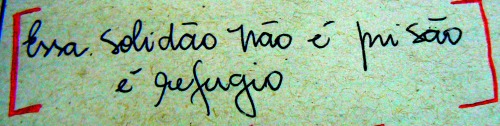 Essa solidão não é prisão
é refugio